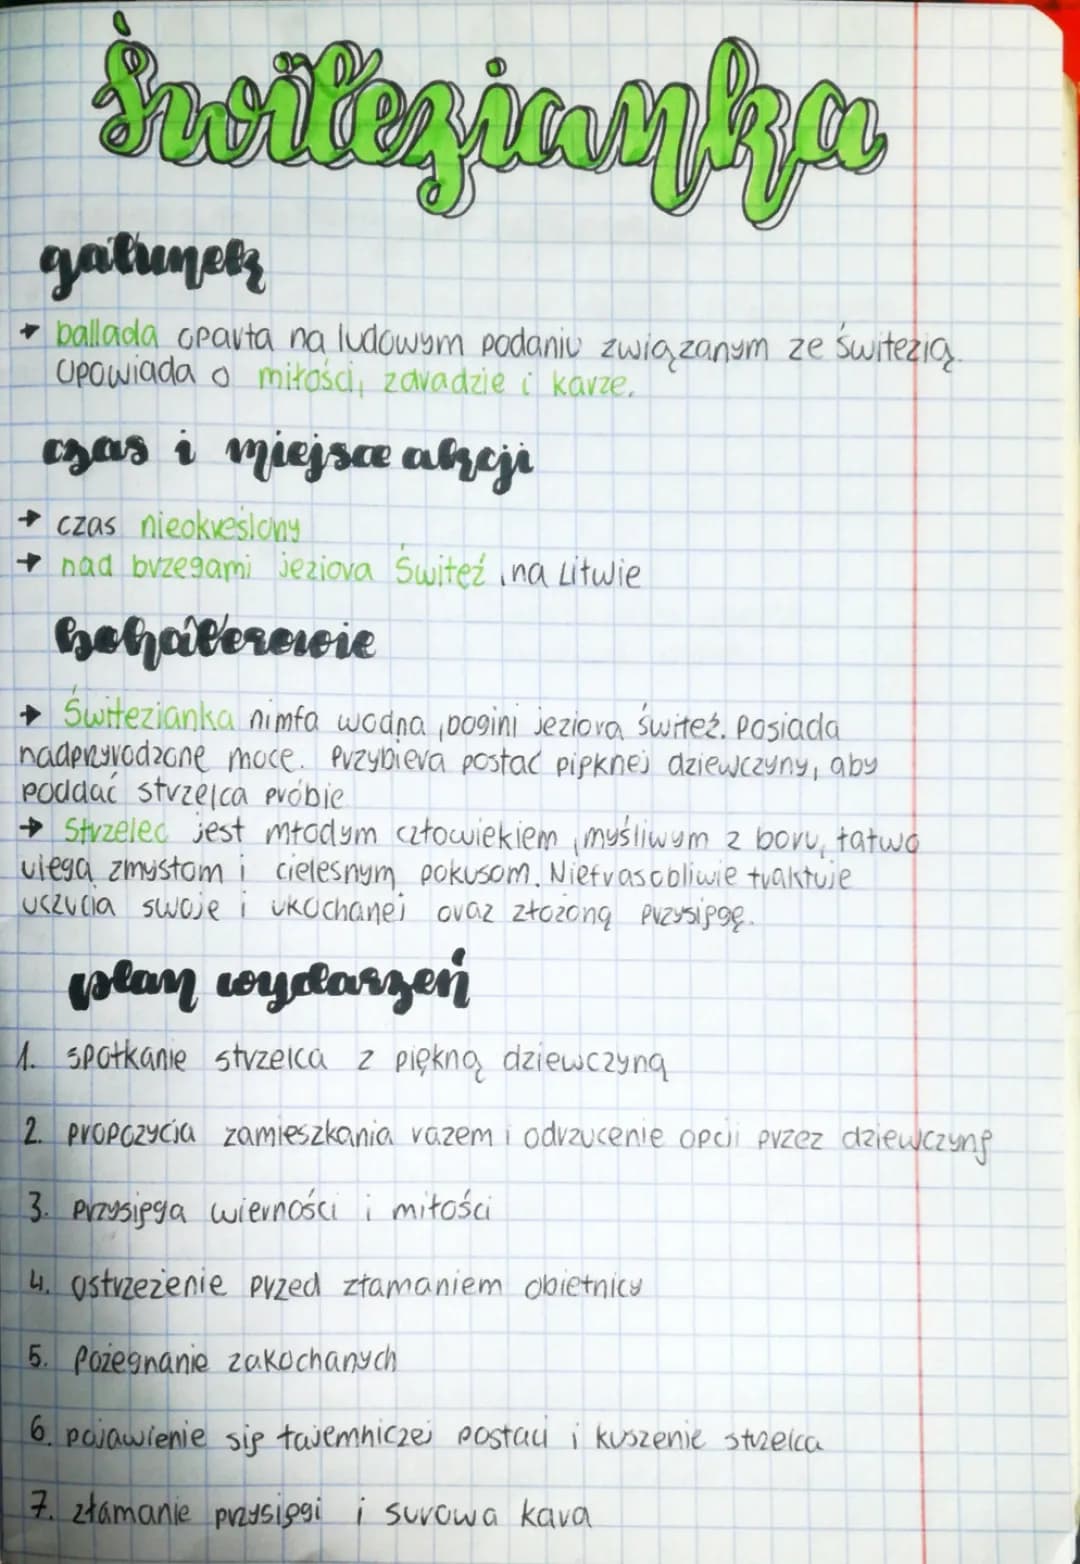 Świtezianka
gatunek
→ ballada oparta na ludowym podaniu związanym ze Świtezią.
Opowiada o miłości, zdradzie i karze.
czas i miejsce akcji
→ czas nieokreślony
→ nad brzegami jeziora Świteź, na Litwie
bohaterowie
→ Świtezianka nimfa wodna, bogini jeziora Świteź. Posiada
nadprzyrodzone moce. Przybiera postać pięknej dziewczyny, aby
poddać strzelca próbie
→ Strzelec jest młodym człowiekiem, myśliwym z boru, łatwo
ulega zmysłom i cielesnym pokusom. Niefrasobliwie traktuje
uczucia swoje i ukochanej oraz złożoną przysięgę.
plan wydarzeń
1. spotkanie strzelca z piękną dziewczyną
2. propozycja zamieszkania razem i odrzucenie opcji przez dziewczynę
3. Przysięga wierności i miłości
4. Ostrzeżenie przed złamaniem obietnicy
5. Pożegnanie zakochanych
6. pojawienie się tajemniczej postaci i kuszenie strzelca
7. złamanie przysięgi i surowa kara